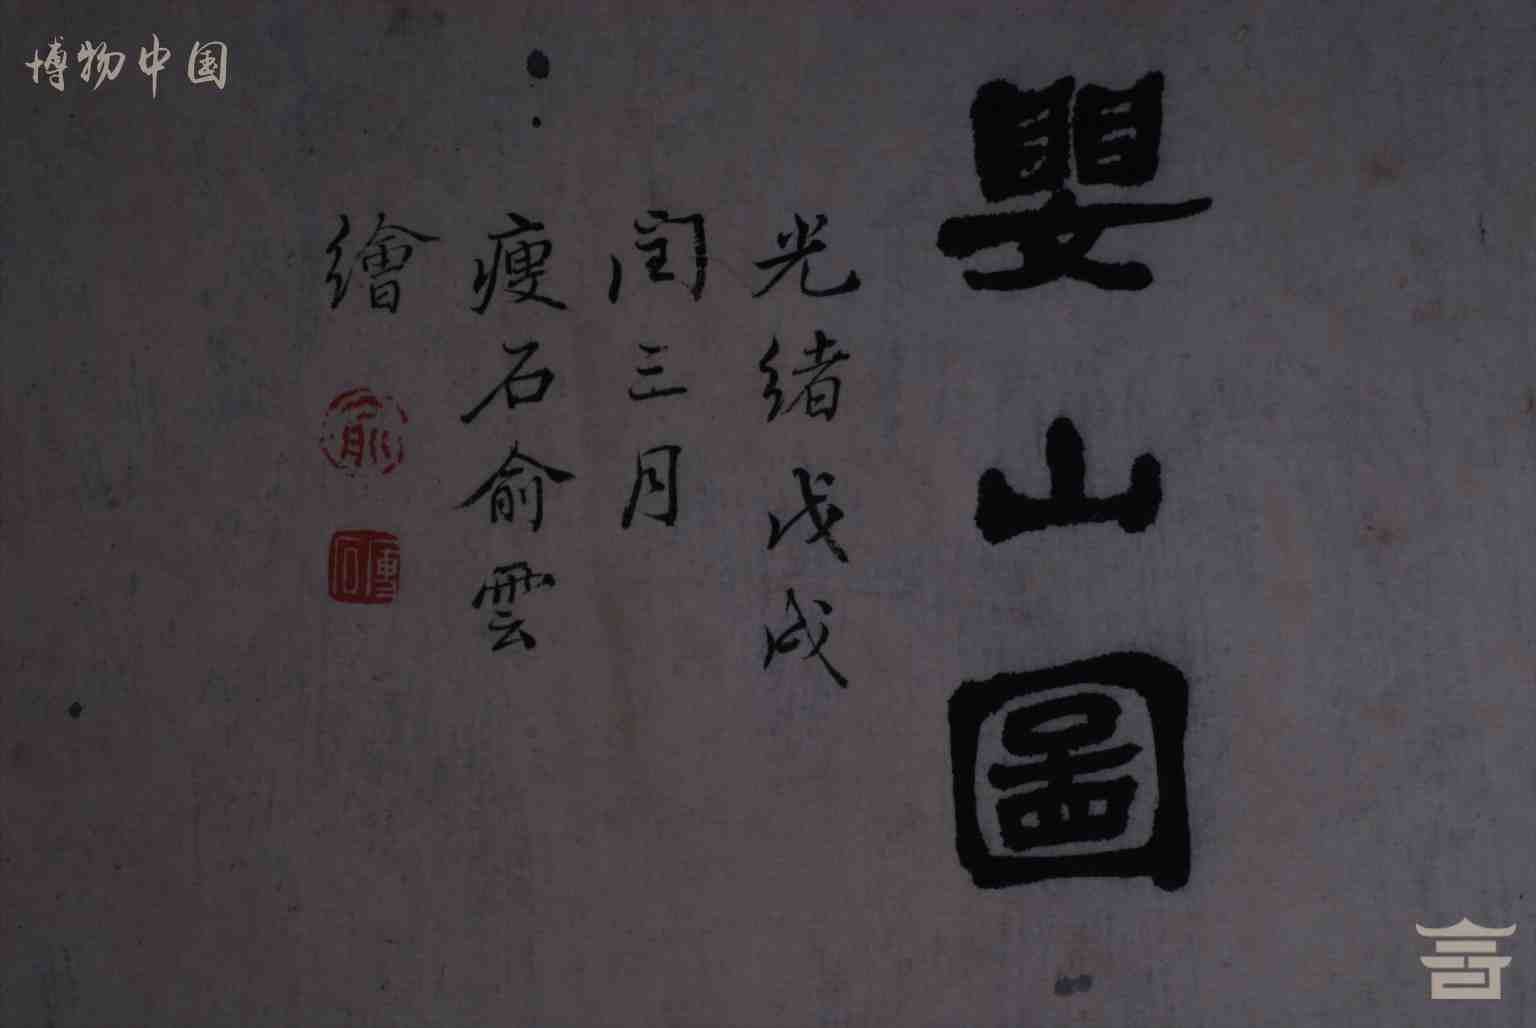 博物中国
嬰山圖
光緒戊戌
閏三月
瘦石俞雲
繪
俞
石